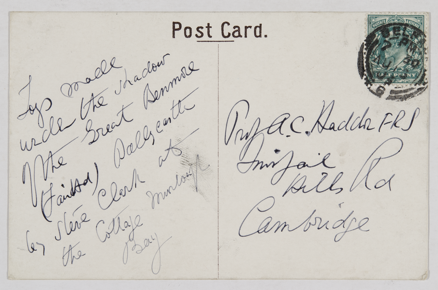 Post Card.
Toys made
under the shadow
of the Great Benmore
(Fairhead) Ballycastle
by Steve Clark at
the Cottage Murlough
Bay
Prof A.C. Haddon FRS
Innisfail
Hills Rd
Cambridge